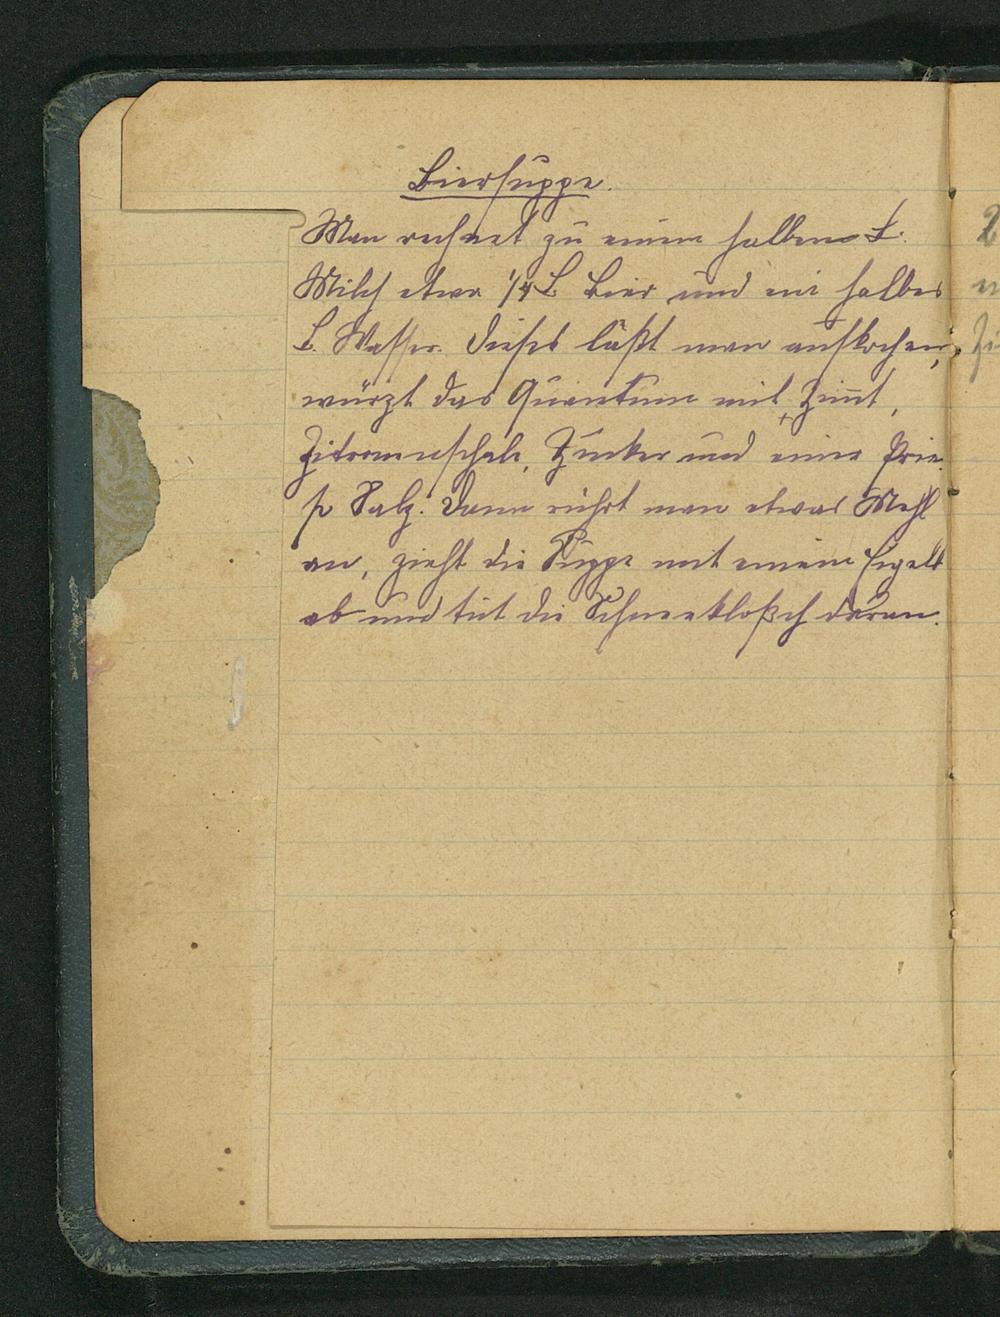 Biersuppe.
Man rechnet zu einem halben L.
Milch etwa 1/4 L Bier und ein halbes
L. Wasser. Dieses läßt man aufkochen,
würzt das Quantum mit Zimt,
Zitronenschale, Zucker und einer Prie-
se Salz. Dann rührt man etwas Mehl
an, zieht die Suppe mit einem Eigelb
ab und tut die daran.